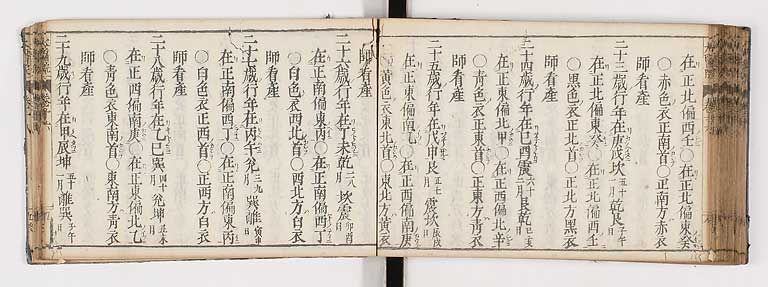 在正北偏西壬〇在正北偏東癸
〇赤色衣正南首〇正南方赤衣
師看產
二十三歲行年在庚戌坎五十一月乾艮子午日
在正北偏東癸〇在正北偏西壬
〇黑色衣正北首〇正北方黑衣
師看產
二十四歲行年在己酉震六十二月艮乾巳亥日
在正東偏北甲〇在正西偏北辛
〇青色衣正東首〇正東方青衣
師看產
二十五歲行年在戊申艮正七月震坎辰戌日
在正東偏南乙〇在正西偏南庚
〇黃色衣東北首〇東北方黃衣
師看產
二十六歲行年在丁未乾二八月坎震卯酉日
在正南偏東丙〇在正南偏西丁
〇白色衣西北首〇西北方白衣
師看產
二十七歲行年在丙午兌三九月巽離寅申日
在正南偏西丁〇在正南偏東丙
〇白色衣正西首〇正西方白衣
師看產
二十八歲行年在乙巳巽四十月兌坤丑未日
在正西偏南庚〇在正東偏北乙
〇青色衣東南首〇東南方青衣
師看產
二十九歲行年在甲辰坤五十一月離巽子午日